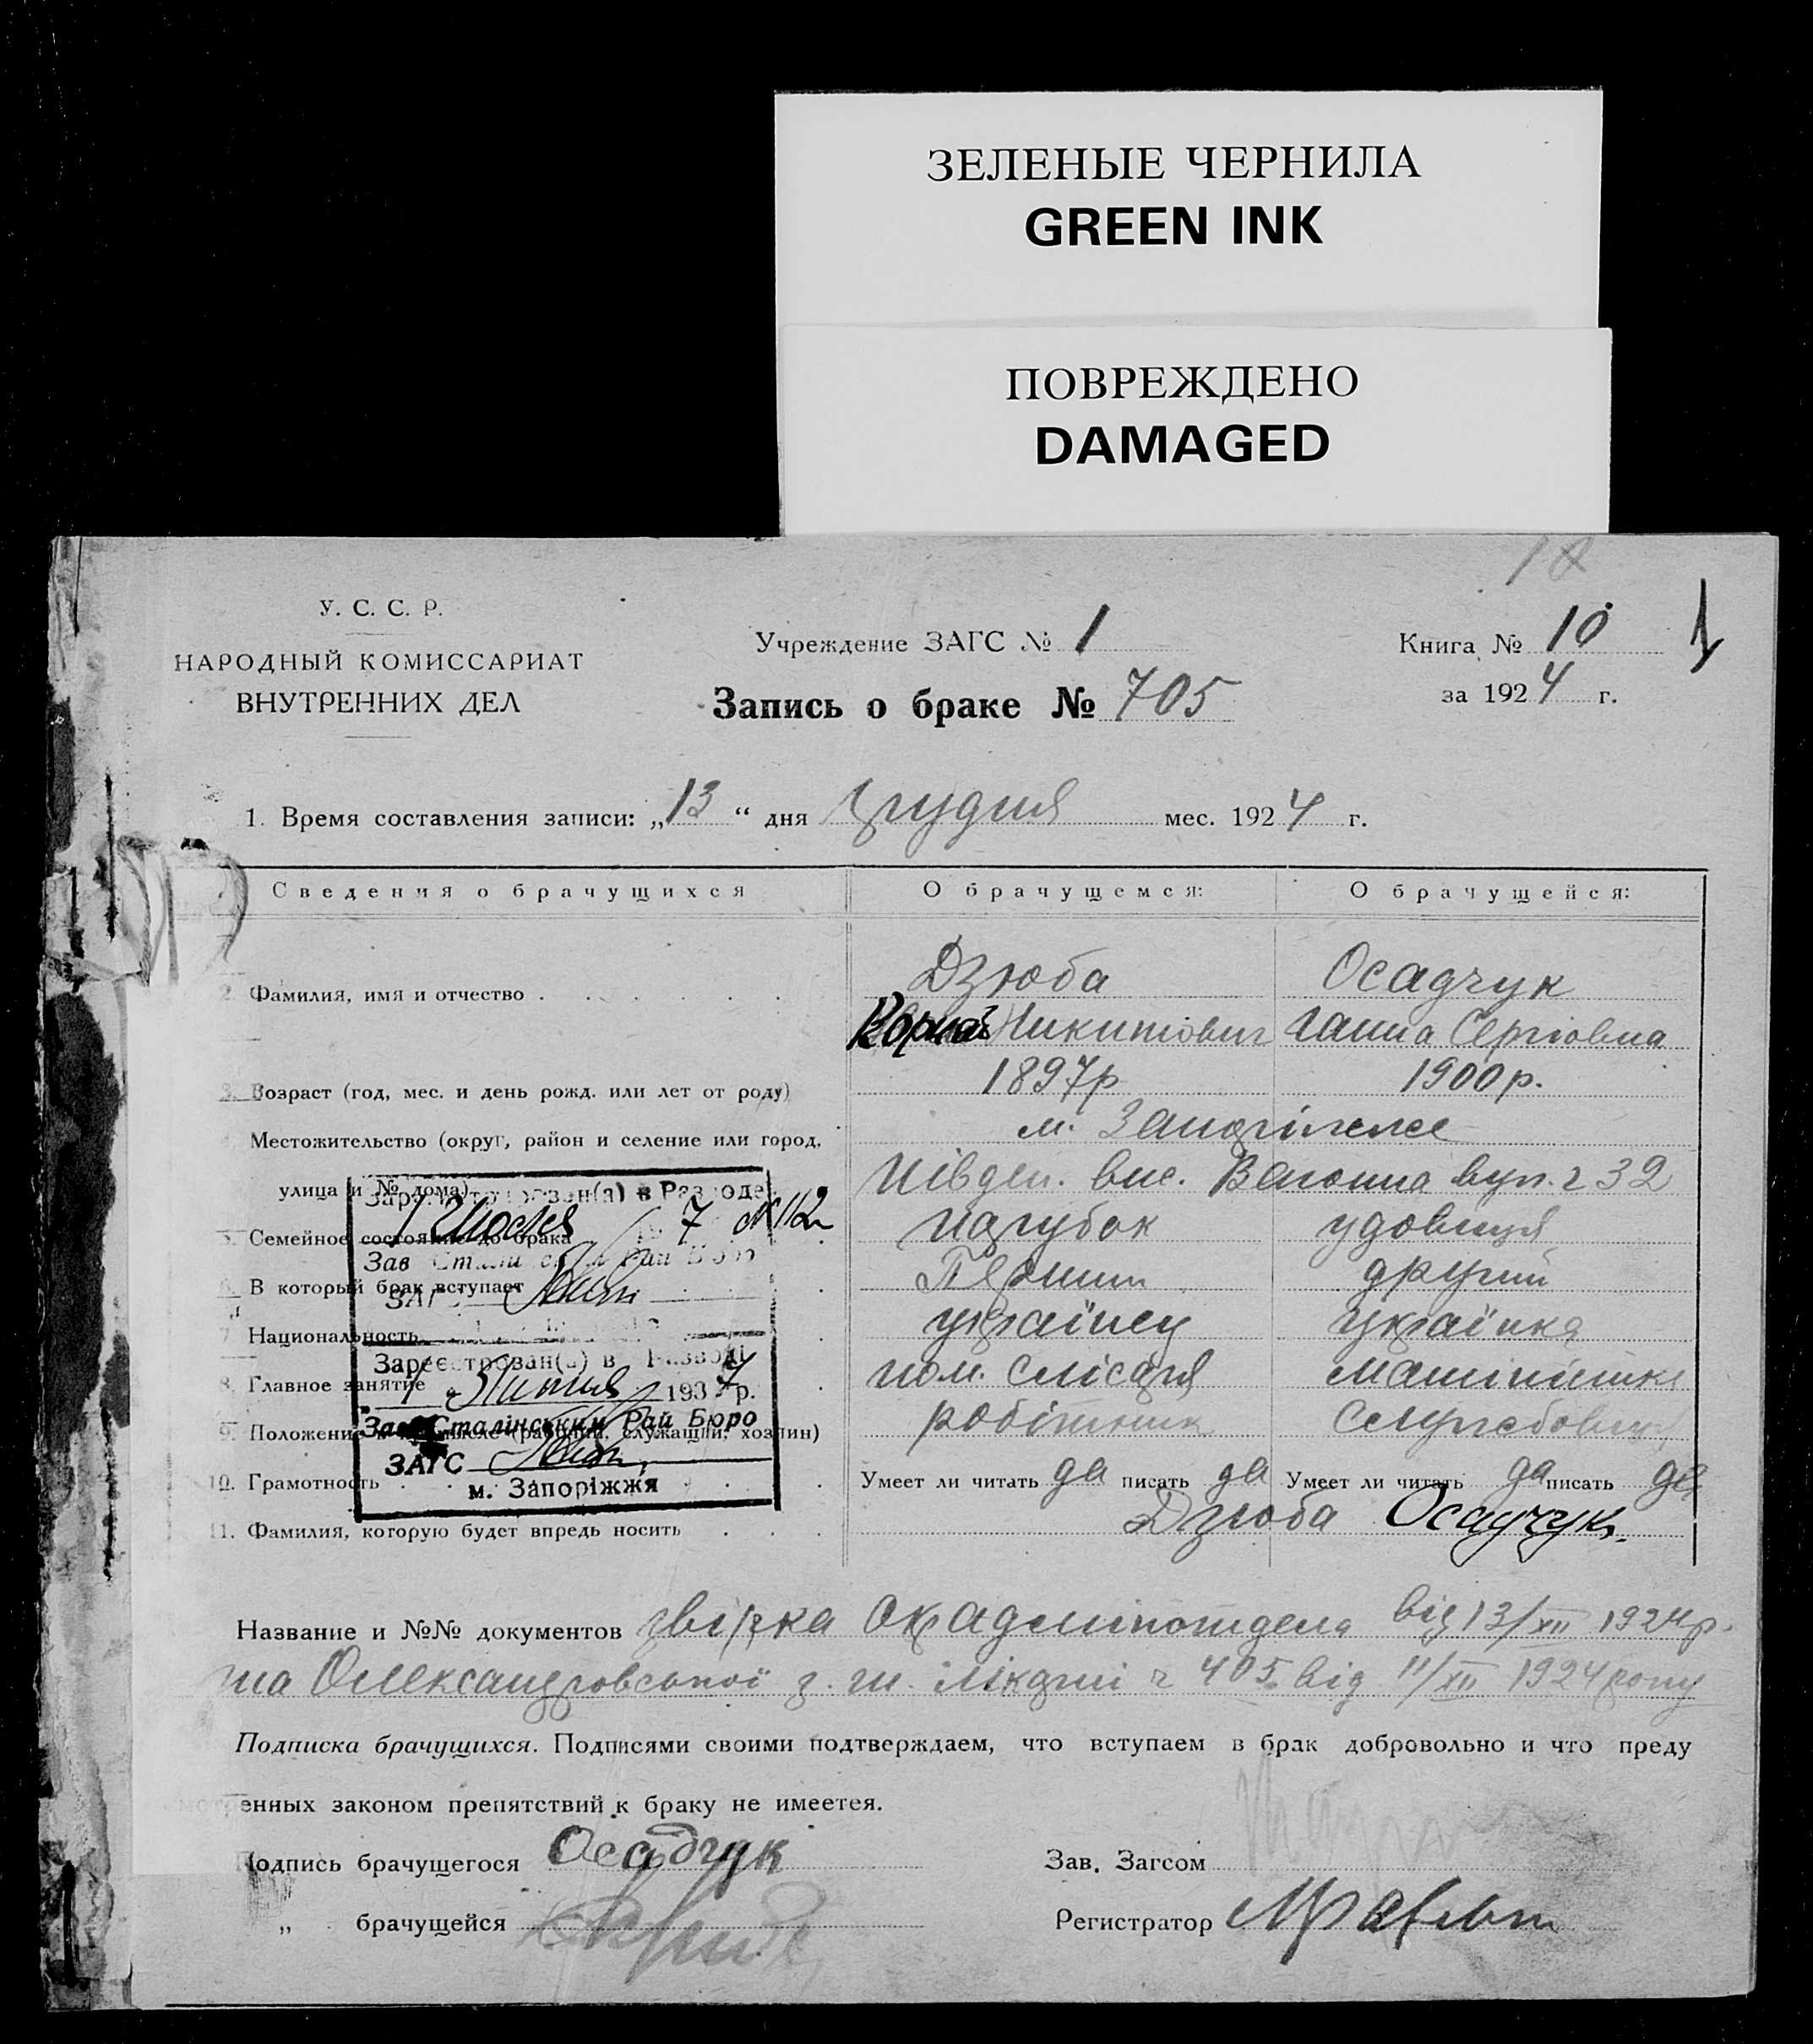 ЗЕЛЕНЫЕ ЧЕРНИЛА
GREEN INK
ПОВРЕЖДЕНО
DAMAGED
У. С. С. Р.
НАРОДНЫЙ КОМИССАРИАТ
ВНУТРЕННИХ ДЕЛ
Учреждение ЗАГС № 1
Книга № 10
1
за 1924 г.
Запись о браке № 705
1. Время составления записи: „13“ дня грудня мес. 1924 г.
Сведения о брачущихся О брачущемся: О брачущейся:
Дзюба Осадчук
2. Фамилия, имя и отчество
Никитович Ганна Сергіовна
3. Возраст (год, мес. и день рожд. или лет от роду) 1897р 1900р.
Местожительство (округ, район и селение или город, м. Запоріжжє
улица и № дома) Півден. вис. вул. ч 32
5. Семейное состояние до брака парубок удовиця
6. В который брак вступает Перший другий
7. Национальность українец українка
8. Главное занятие пом. слісаря машиністка
9. Положение (рабочий, служащий, хозяин) робітник
10. Грамотность Умеет ли читать да писать да Умеет ли читать да писать да
11. Фамилия, которую будет впредь носить Дзюба Осадчук.
в Разводе
7 № 112
Зав
Зареєстрован(а) в
1 Липня 1937 р.
Зав Сталінським Рай Бюро
ЗАГС
м. Запоріжжя
Название и №№ документов від 13/XII 1924р.
та Олександровської ч 405 від 11/XII 1924 року
Подписка брачущихся. Подписями своими подтверждаем, что вступаем в брак добровольно и что преду
смотренных законом препятствий к браку не имеется.
Подпись брачущегося Осадчук
Зав. Загсом
„ брачущейся
Регистратор